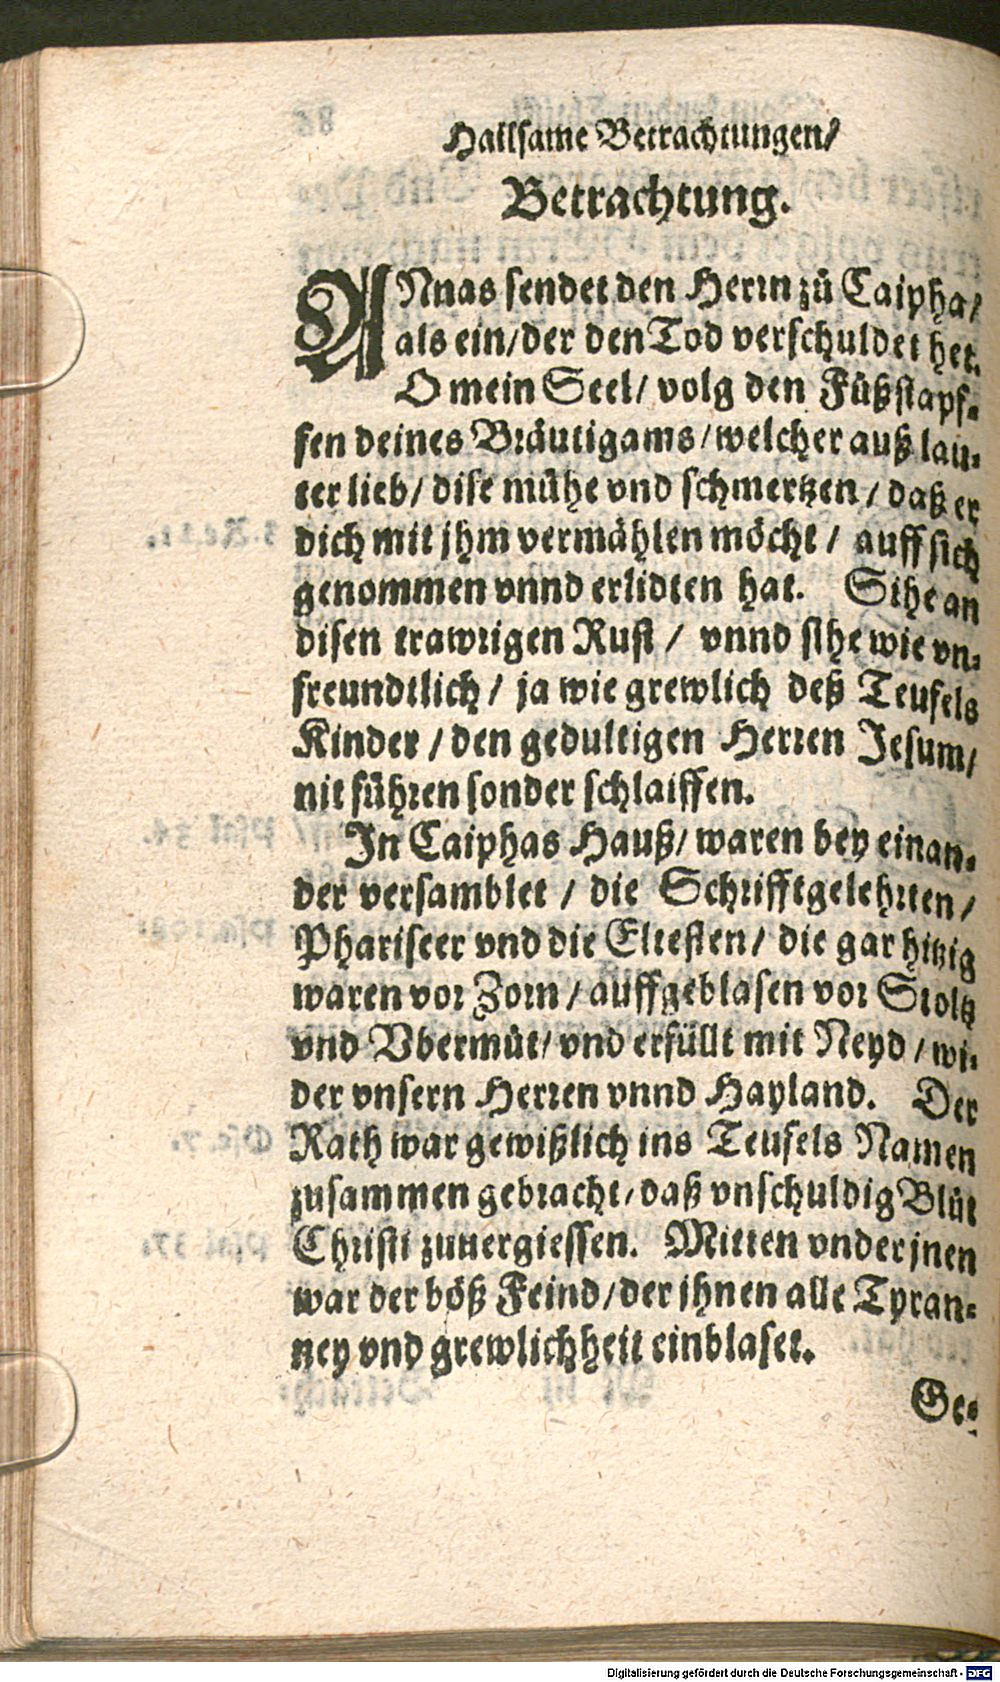 Hailsame Betrachtungen/
Betrachtung.
ANnas sendet den Herrn zů Caipha/
als ein/der den Tod verschuldet het.
O mein Seel/ volg den Füßstapf-
fen deines Bräutigams/welcher auß lau-
ter lieb/ dise mühe vnd schmertzen/ daß er
dich mit jhm vermählen möcht/ auff sich
genommen vnnd erlidten hat. Sihe an
disen trawrigen Rust/ vnnd sihe wie vn-
freundtlich/ ja wie grewlich deß Teufels
Kinder/den gedultigen Herren Jesum/
nit führen sonder schlaiffen.
In Caiphas Hauß/waren bey einan-
der versamblet/ die Schrifftgelehrten/
Phariseer vnd die Eltesten/ die gar hitzig
waren vor Zorn/auffgeblasen vor Stoltz
vnd Vbermůt/vnd erfüllt mit Neyd/wi-
der vnsern Herren vnnd Hayland. Der
Rath war gewißlich ins Teufels Namen
zusammen gebracht/daß vnschuldig Blůt
Christi zuuergiessen. Mitten vnder jnen
war der böß Feind/der jhnen alle Tyran-
ney vnd grewlichheit einblaset.
Ge-
Digitalisierung gefördert durch die Deutsche Forschungsgemeinschaft - DFG